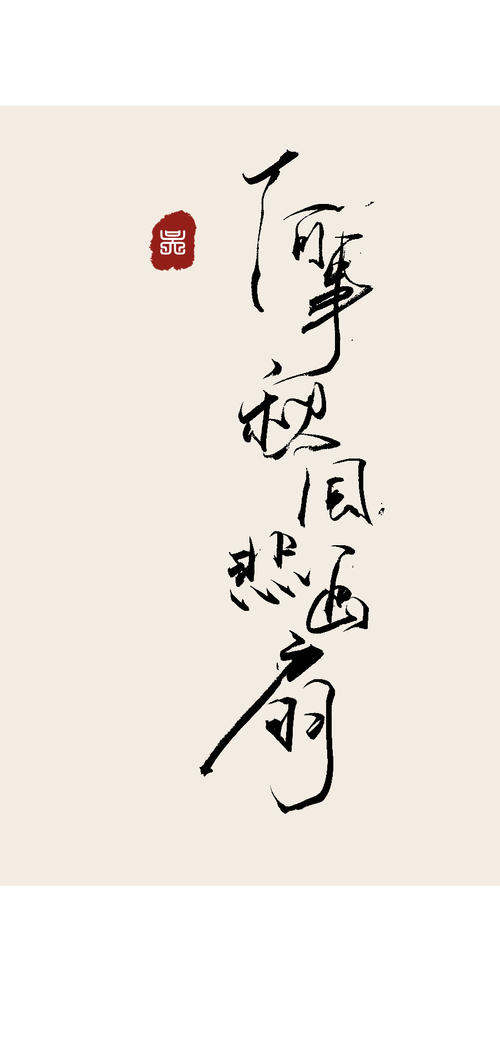 何事秋风悲画扇